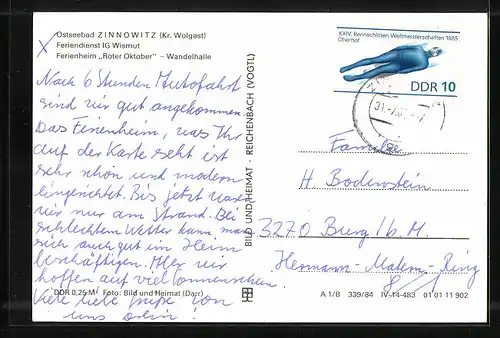 Ostseebad ZINNOWITZ (Kr. Wolgast)
Feriendienst IG Wismut
Ferienheim „Roter Oktober" – Wandelhalle
Nach 6 Stunden Autofahrt
sind wir gut angekommen.
Das Ferienheim, was Ihr
auf der Karte seht ist
sehr schön und modern
eingerichtet. Bis jetzt waren
wir nur am Strand. Bei
schlechtem Wetter kann man
sich auch gut im Heim
beschäftigen. Aber wir
hoffen auf viel Sonnenschein
Viele liebe Grüße von
uns
DDR 0,25 M Foto: Bild und Heimat (Darr)
BILD UND HEIMAT · REICHENBACH (VOGTL)
XXIV. Rennschlitten-Weltmeisterschaften 1985
Oberhof
DDR 10
31.-7.
Familie
H. Bodenstein
3270 Burg / b. M.
Hermann-Matern-Ring
A 1/B 339/84 IV-14-483 01 01 11 902